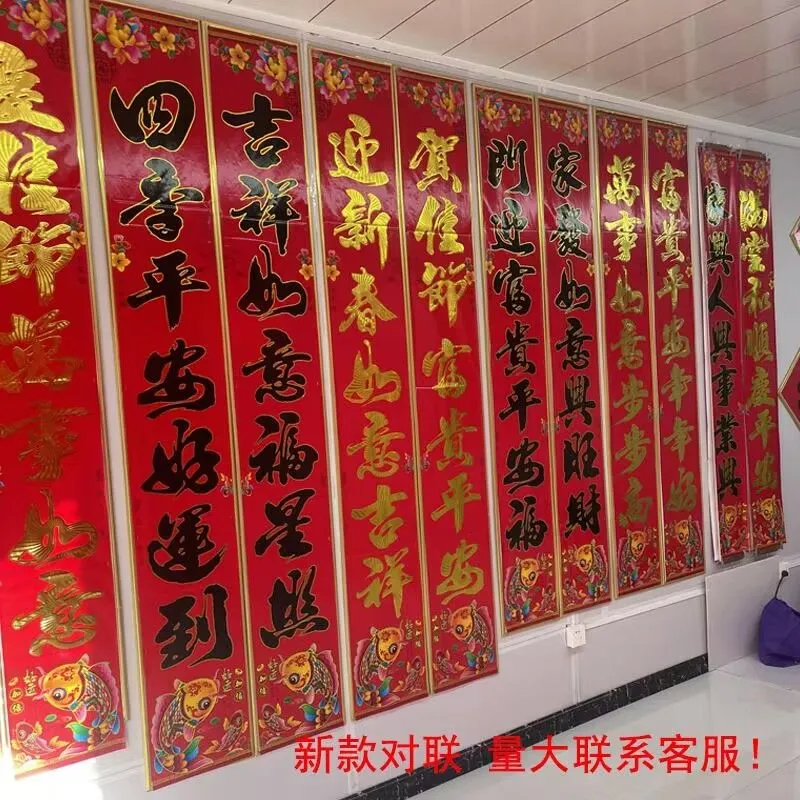 慶佳節萬事如意
四季平安好運到
吉祥如意福星照
迎新春如意吉祥
賀佳節富貴平安
門迎富貴平安福
家發如意興旺財
萬事如意步步高
富貴平安年年好
家興人興事業興
滿堂和順慶平安
新款对联 量大联系客服！